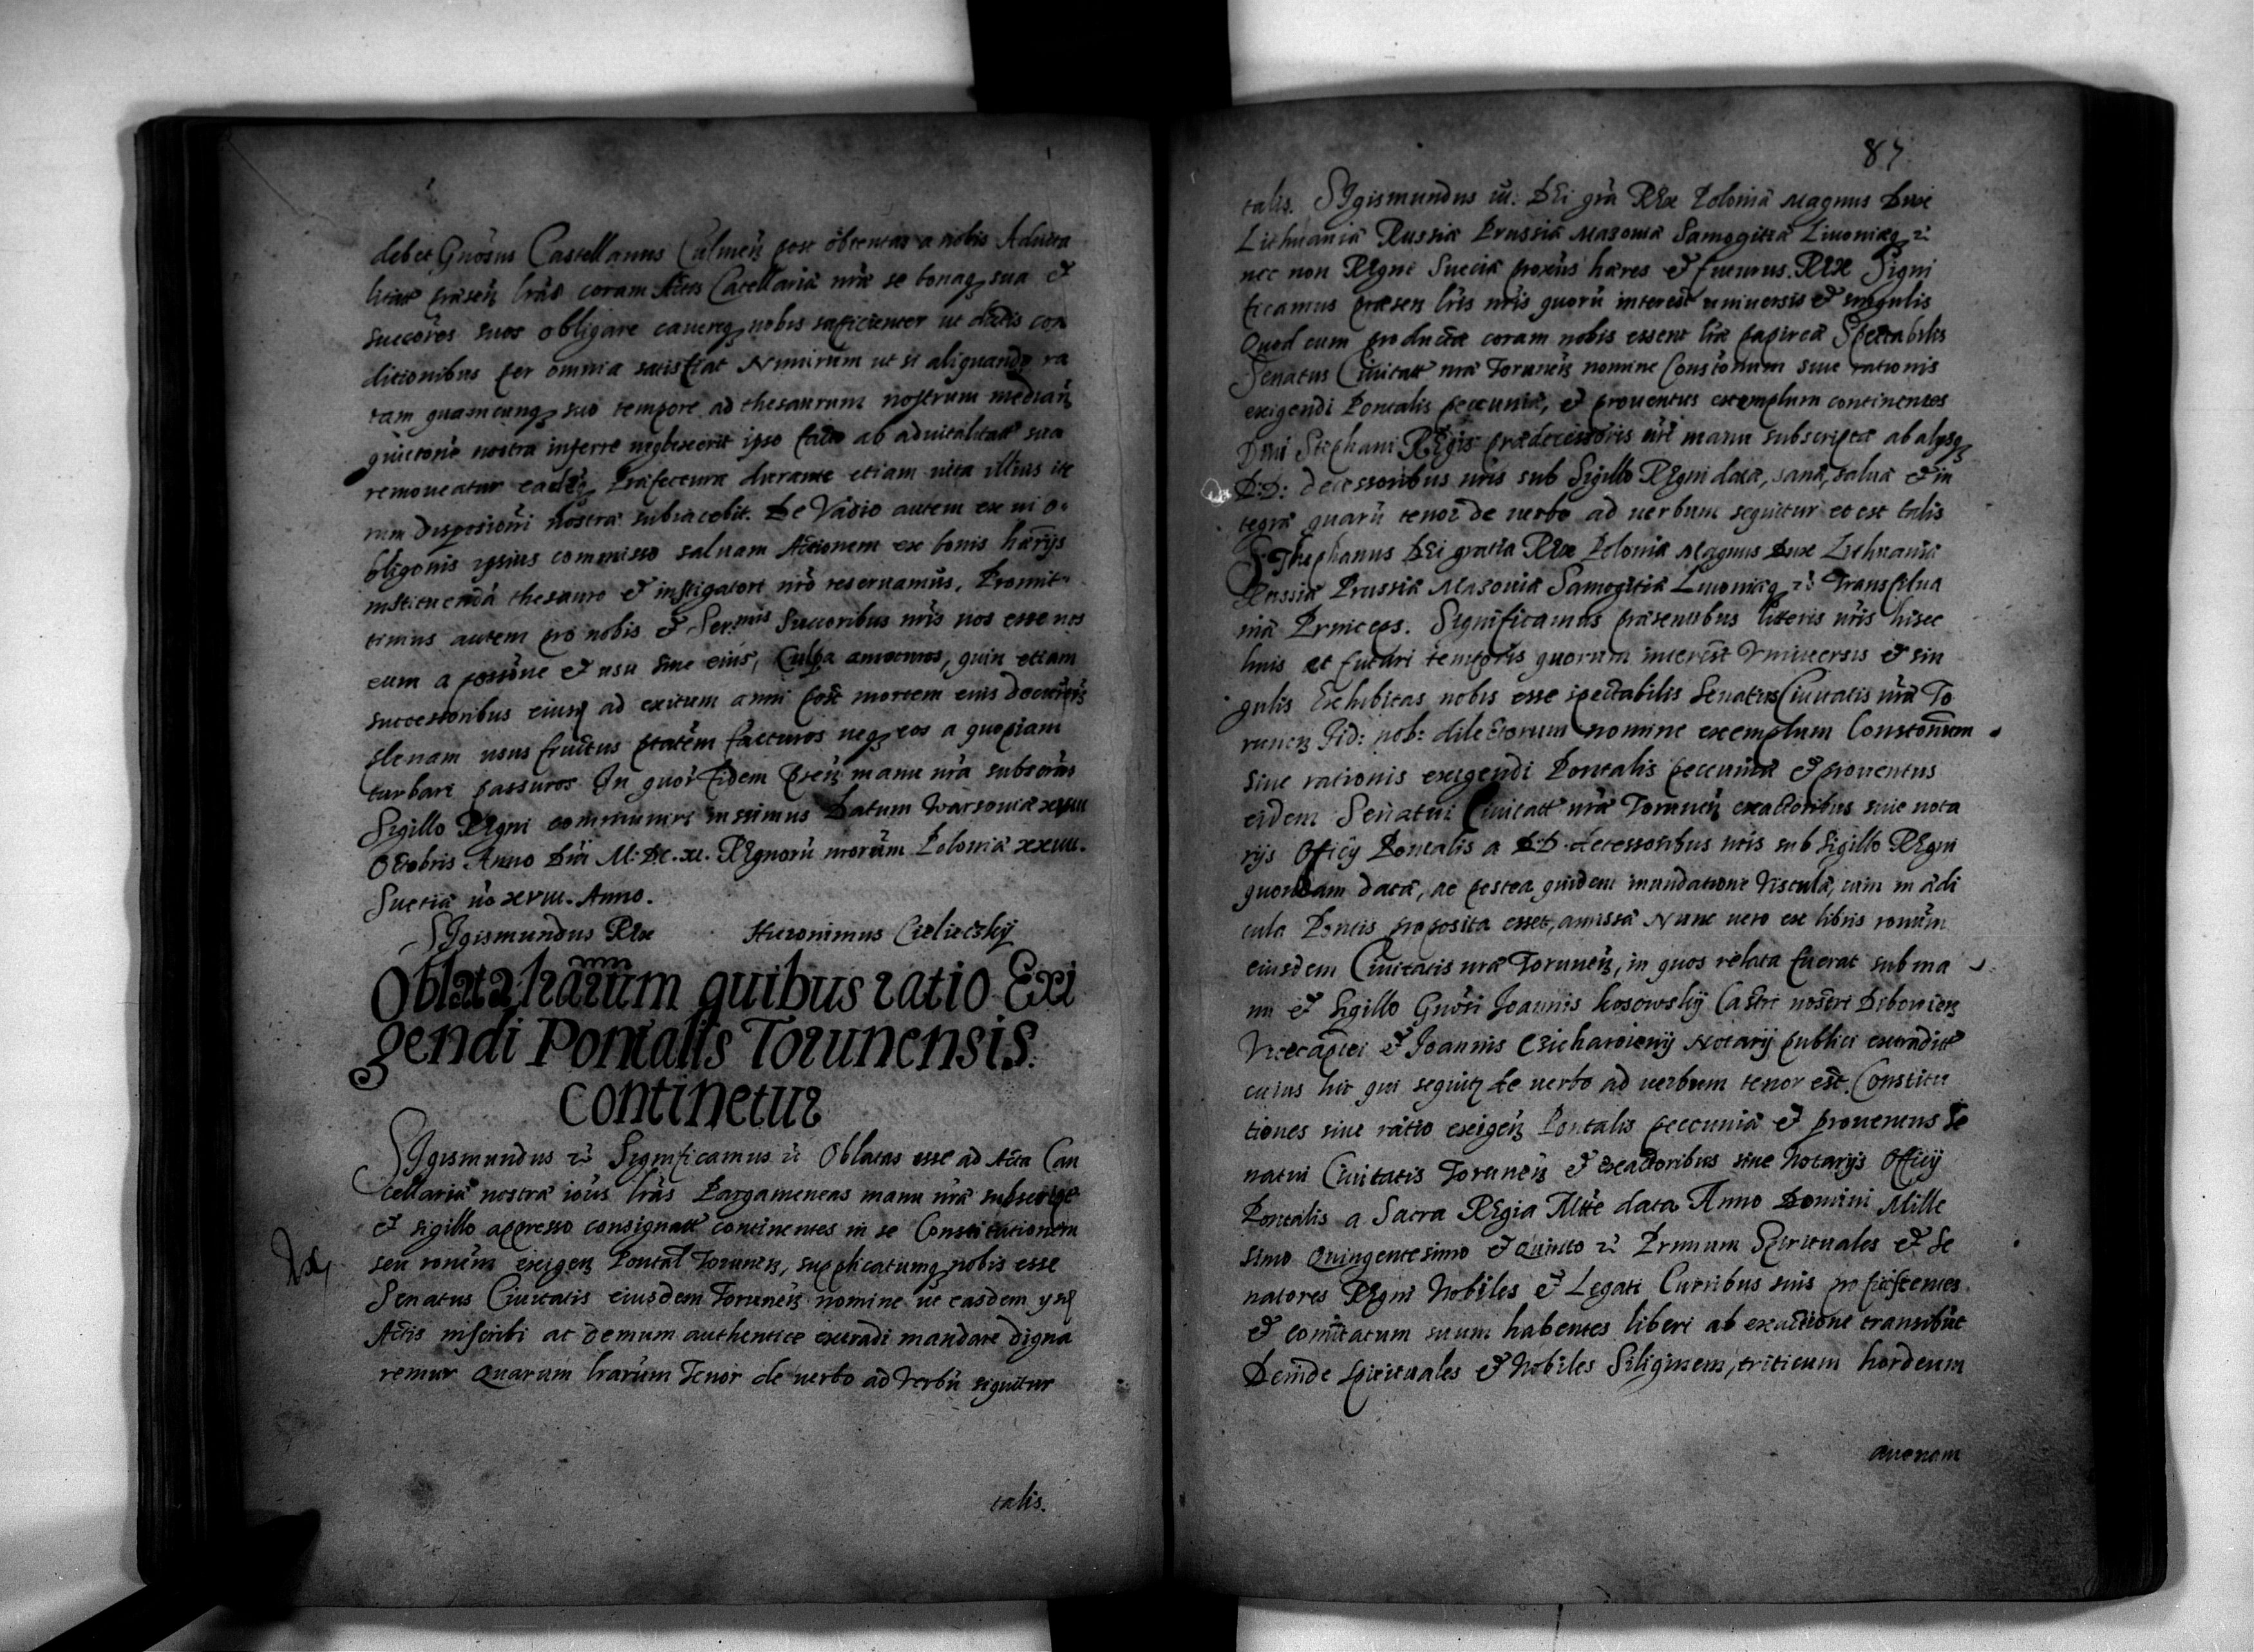 debet Gnosus Castellanus Culmen post obtentas a nobis Aduita
litatt præsen lras coram Actis Cacellariæ nræ se bonaq sua et
succores suos obligare cauereq nobis sufficienter ut dictis con
ditionibus per omnia satisfiat Nimirum ut si aliquando ra
tam quamcunq suo tempore ad thesaurum nostrum median
quietone nostra inferre neglexerit ipso facto ab aduitalitatt sua
remoueatur eadeq Præfectura durante etiam uita illius ite
rum dispositioni nostræ subiacebit. De Vadio autem ex ui o
bligonis ipsius commisso saluam Actionem ex bonis
instituendã thesauro et instigatori nro reseruamus. Promit
timus autem pro nobis et Ser:mis Succoribus nris nos esse nos
eum a possione et usu siue eius, Culpa amoturos, quin etiam
successoribus eius ad exitum anni post mortem eius
plenam usus fructus ptatem facturos neq eos a quopiam
turbari passuros In quor fidem psen manu nra subscras
Sigillo REgni communiri iussimus Datum Warsouiæ xviii
Octobris Anno Dni M. DC. xi. REgnorũ nrorum Poloniæ xxiiii.
Suetiæ uo xviii. Anno.
SIgismundus REx Hieronimus Cieliecský
Oblata lrarum quibus ratio Exi
gendi Pontalis Torunensis
continetur
SIgismundus etc Significamus etc Oblatas esse ad Acta Can
cellariæ nostræ lras Pargameneas manu nra subscriptt
et sigillo appresso consignatt continentes in se Constitutionem
seu ronem exigen Pontal Torunen, supplicatumq nobis esse
Senatus Ciuitatis eiusdem Torunen nomine ut easdem ysd
Actis inscribi ac demum authentice extradi mandare digna
remur Quarum lrarum Tenor de uerbo ad Verbũ sequitur
talis.
87
talis. SIgismundus iii. DEi grã REx Poloniæ Magnus Dux
Lithuaniæ Russiæ Prussiæ Masouiæ Samogitiæ Liuoniæq etc
nec non REgni Sueciæ proxius hæres et futurus REx Signi
ficamus præsen lris nris quorũ interest uniuersis et singulis
Quod cum productæ coram nobis essent lræ papireæ Spectabilis
Senatus Ciuitatt nræ Torunen nomine Constonum siue rationis
exigendi Pontalis peccuniæ, et prouentus exemplum continentes
Diui Stephani REgis prædecessoris nri manu subscriptæ ab alysq
D:D: decessoribus nris sub Sigillo REgni datæ, sanæ, saluæ et in
tegræ quarũ tenor de uerbo ad uerbum sequitur et est talis
STephanus DEi gratia REx Poloniæ Magnus Dux Lithuaniæ
Russiæ Prussiæ Masouiæ Samogitiæ Liuoniæq etc Transilua
niæ Princeps. Significamus præsentibus litteris nris hisce
huis et futuri temporis quorum interest Vniuersis et sin
gulis Exhibitas nobis esse spectabilis Senatus Ciuitatis nræ To
runen Fid: nob: dilectorum nomine exemplum Constonum
siue rationis exigendi Pontalis peccuniæ et prouentus
eidem Senatui Ciuitatt nræ Torunen exactoribus siue nota
rijs Officij Pontalis a D:D. decessoribus nris sub Sigillo REgni
quondam datæ, ac postea quidem inundatione Visculæ, cum in ædi
cula Pontis proposita esset, amissæ Nunc uero ex libris ronum
eiusdem Ciuitatis nræ Torunen, in quos relata fuerat sub ma
nu et Sigillo Gnosi Joannis kosowskij Castri nostri Dibouien
Vicecaptei et Joannis Notarij publici extraditt
cuius hic qui sequitq de uerbo ad uerbum tenor est. Constitu
tiones siue ratio exigen Pontalis peccuniæ et prouentus Se
natui Ciuitatis Torunen et Exactoribus siue Notarijs Officij
Pontalis a Sacra REgia Mtte data Anno Domini Mille
simo Quingentesimo et Quinto etc Primum Spirituales et Se
natores REgni Nobiles et Legati Curribus suis proficiscentes
et comitatum suum habentes liberi ab exactione transibũt
Deinde spirituales et Nobiles Siliginem, triticum hordeum
auenam